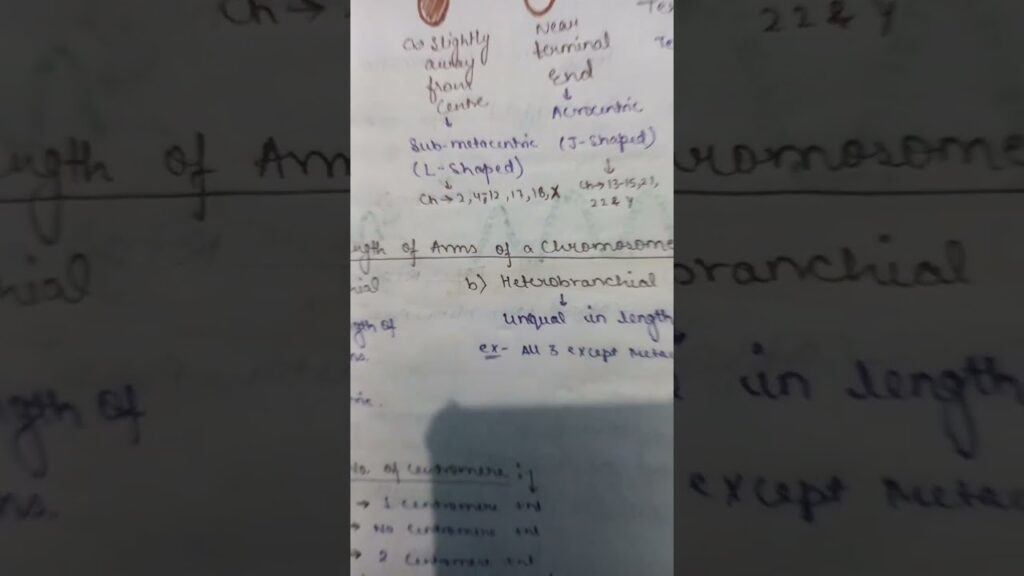 Tes
Te
↔ slightly
away
from
centre
↓
Sub-metacentric
(L-Shaped)
↓
Ch → 2,4-12,17,18,X
Near
terminal
end
↓
Acrocentric
(J-shaped)
↓
Ch → 13-15,21,
22 & Y
ngth of Arms of a Chromosome
b) Heterobranchial
↓
unqual in length
ex- All 3 except Metac
gth of
ns.
No. of Centromere :
→ 1 centromere
→ No Centromere
→ 2 Centomere